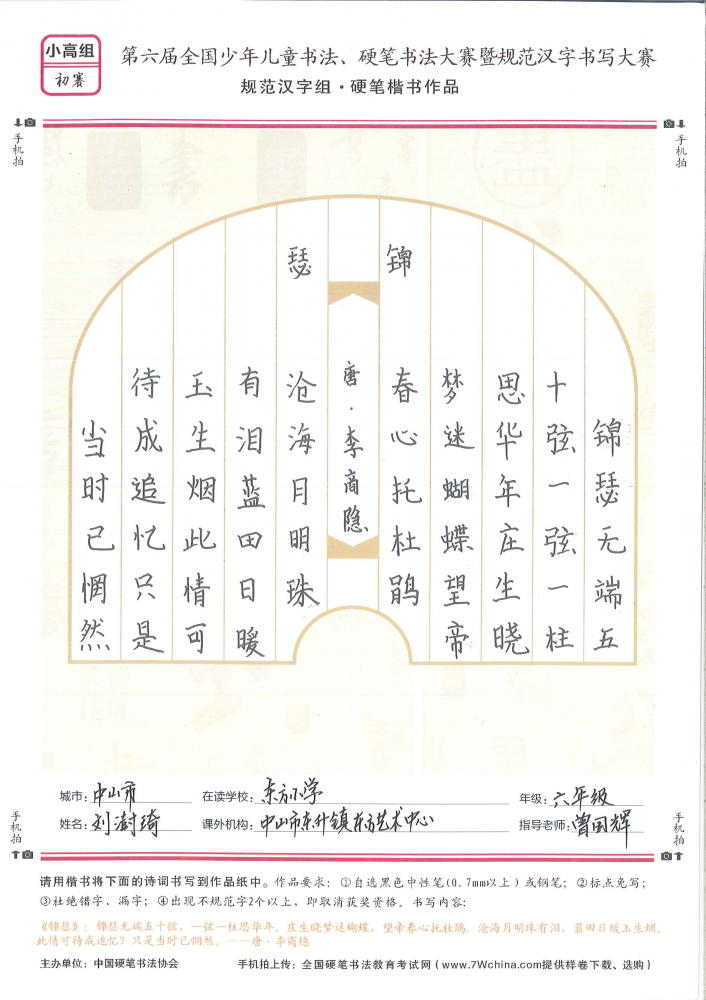 小高组
初赛
第六届全国少年儿童书法、硬笔书法大赛暨规范汉字书写大赛
规范汉字组·硬笔楷书作品
手机拍
手机拍
锦瑟
锦瑟无端五
十弦一弦一柱
思华年庄生晓
梦迷蝴蝶望帝
春心托杜鹃
唐·李商隐
沧海月明珠
有泪蓝田日暖
玉生烟此情可
待成追忆只是
当时已惘然
城市：中山市
在读学校：东方小学
年级：六年级
姓名：刘澍琦
课外机构：中山市东升镇东方艺术中心
指导老师：曾国辉
手机拍
手机拍
请用楷书将下面的诗词书写到作品纸中。作品要求：①自选黑色中性笔(0.7mm以上)或钢笔；②标点免写；
③杜绝错字、漏字；④出现不规范字2个以上，即取消获奖资格。书写内容：
《锦瑟》：锦瑟无端五十弦，一弦一柱思华年。庄生晓梦迷蝴蝶，望帝春心托杜鹃。沧海月明珠有泪，蓝田日暖玉生烟。
此情可待成追忆？只是当时已惘然。——唐·李商隐
主办单位：中国硬笔书法协会
手机拍上传：全国硬笔书法教育考试网（www.7Wchina.com提供样卷下载、选购）